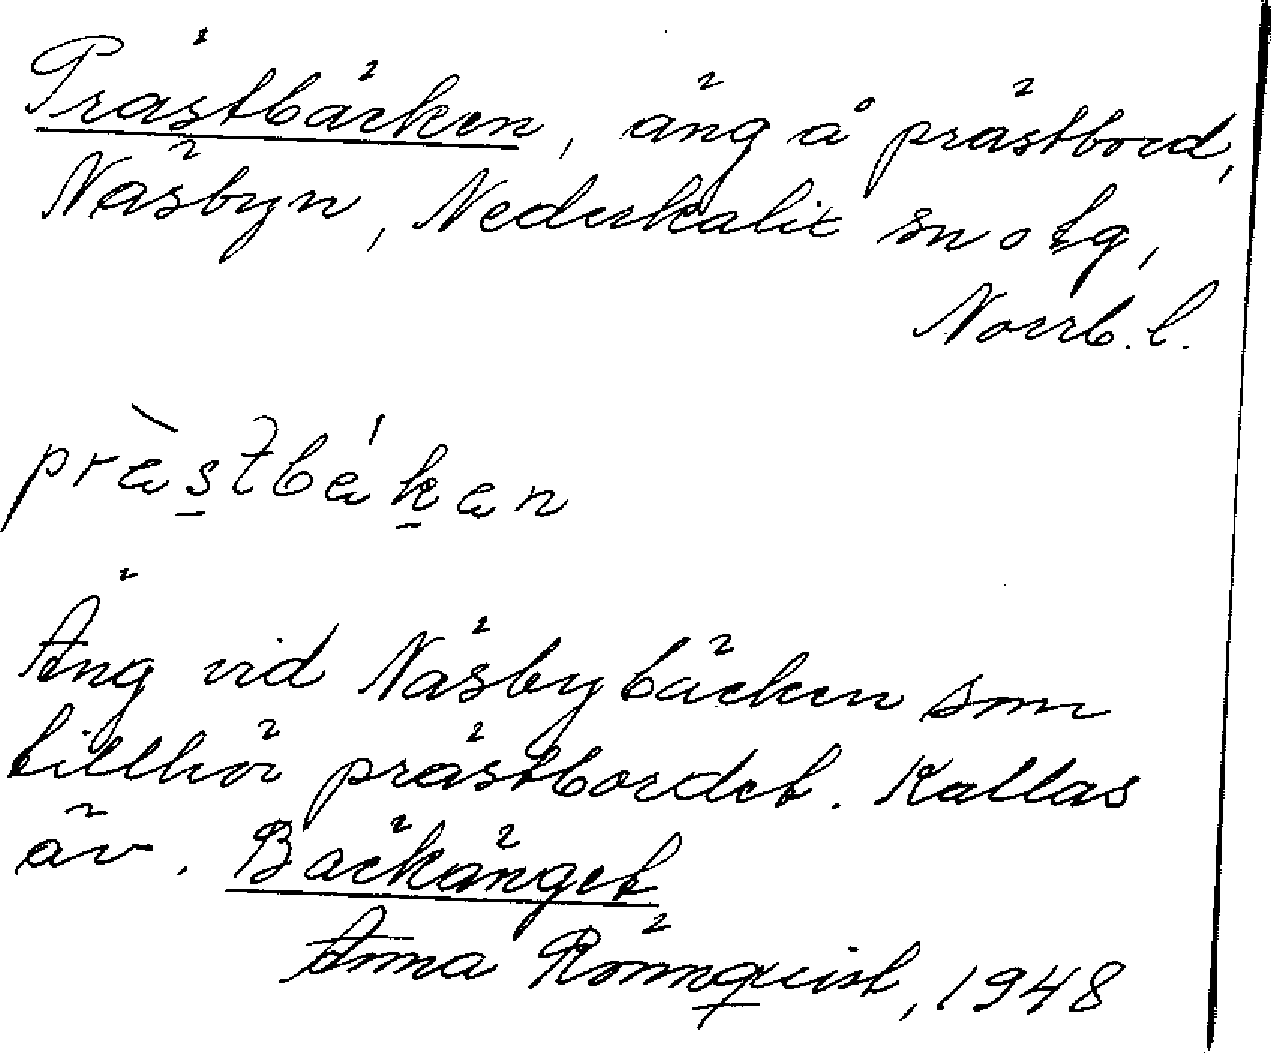 Prästbäcken, äng å prästbord,
Näsbyn, Nederkalix sn o tg,
Norrb. l.
præ̀stbǽkæn
Äng vid Näsbybäcken som
tillhör prästbordet. Kallas
äv. Bäckänget
Anna Rönnquist, 1948